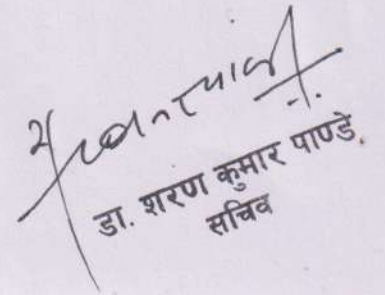 डा. शरण कुमार पाण्डे
सचिव